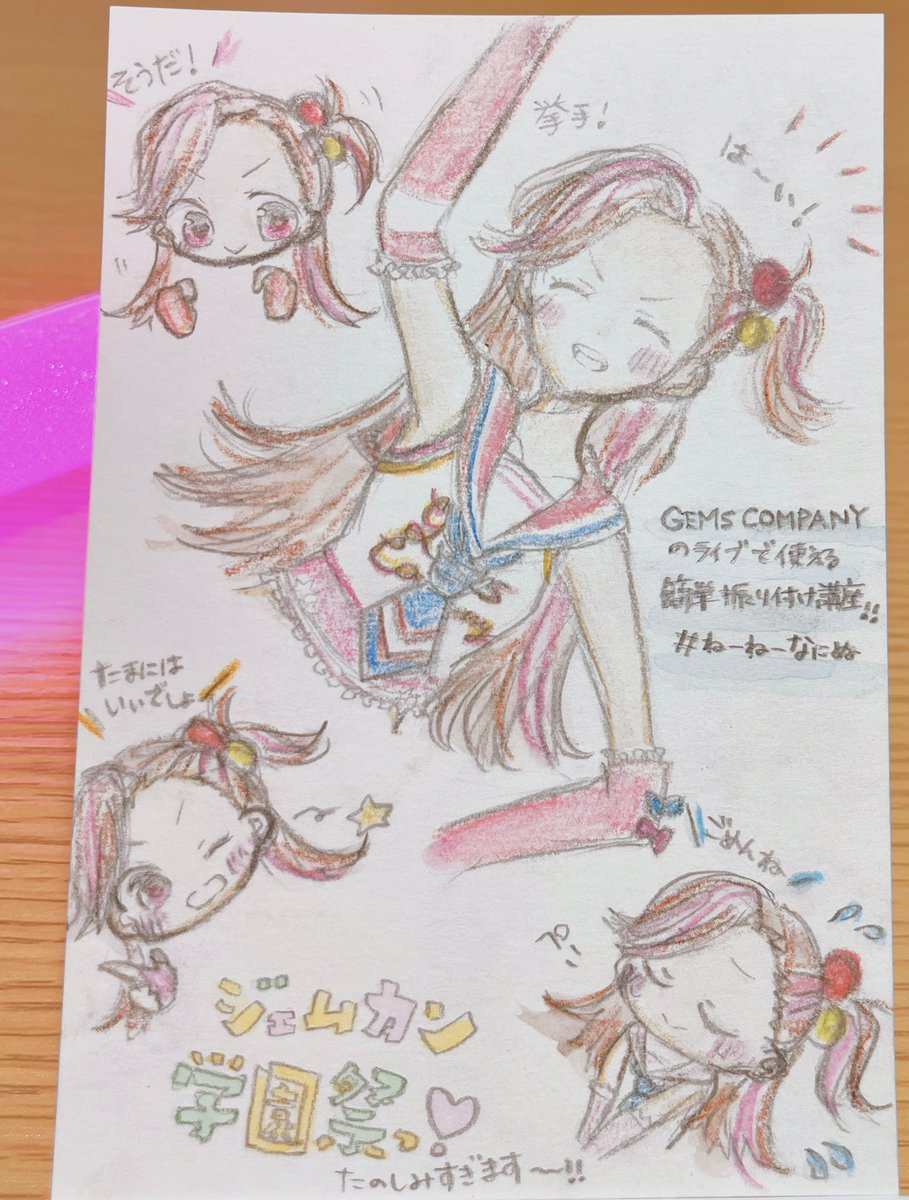 そうだ!
挙手!
はーい!
GEMS COMPANY
のライブで使える
簡単振り付け講座!!
#ねーねーなにぬ
たまには
いいでしょ
ごめんね
ジェムカン
学園祭っ!
たのしみすぎます〜!!